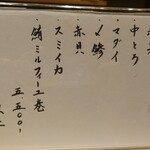 ・中とろ
・マダイ
・〆鯵
・赤貝
・スミイカ
・鮪ミルフィーユ巻
五五〇〇、